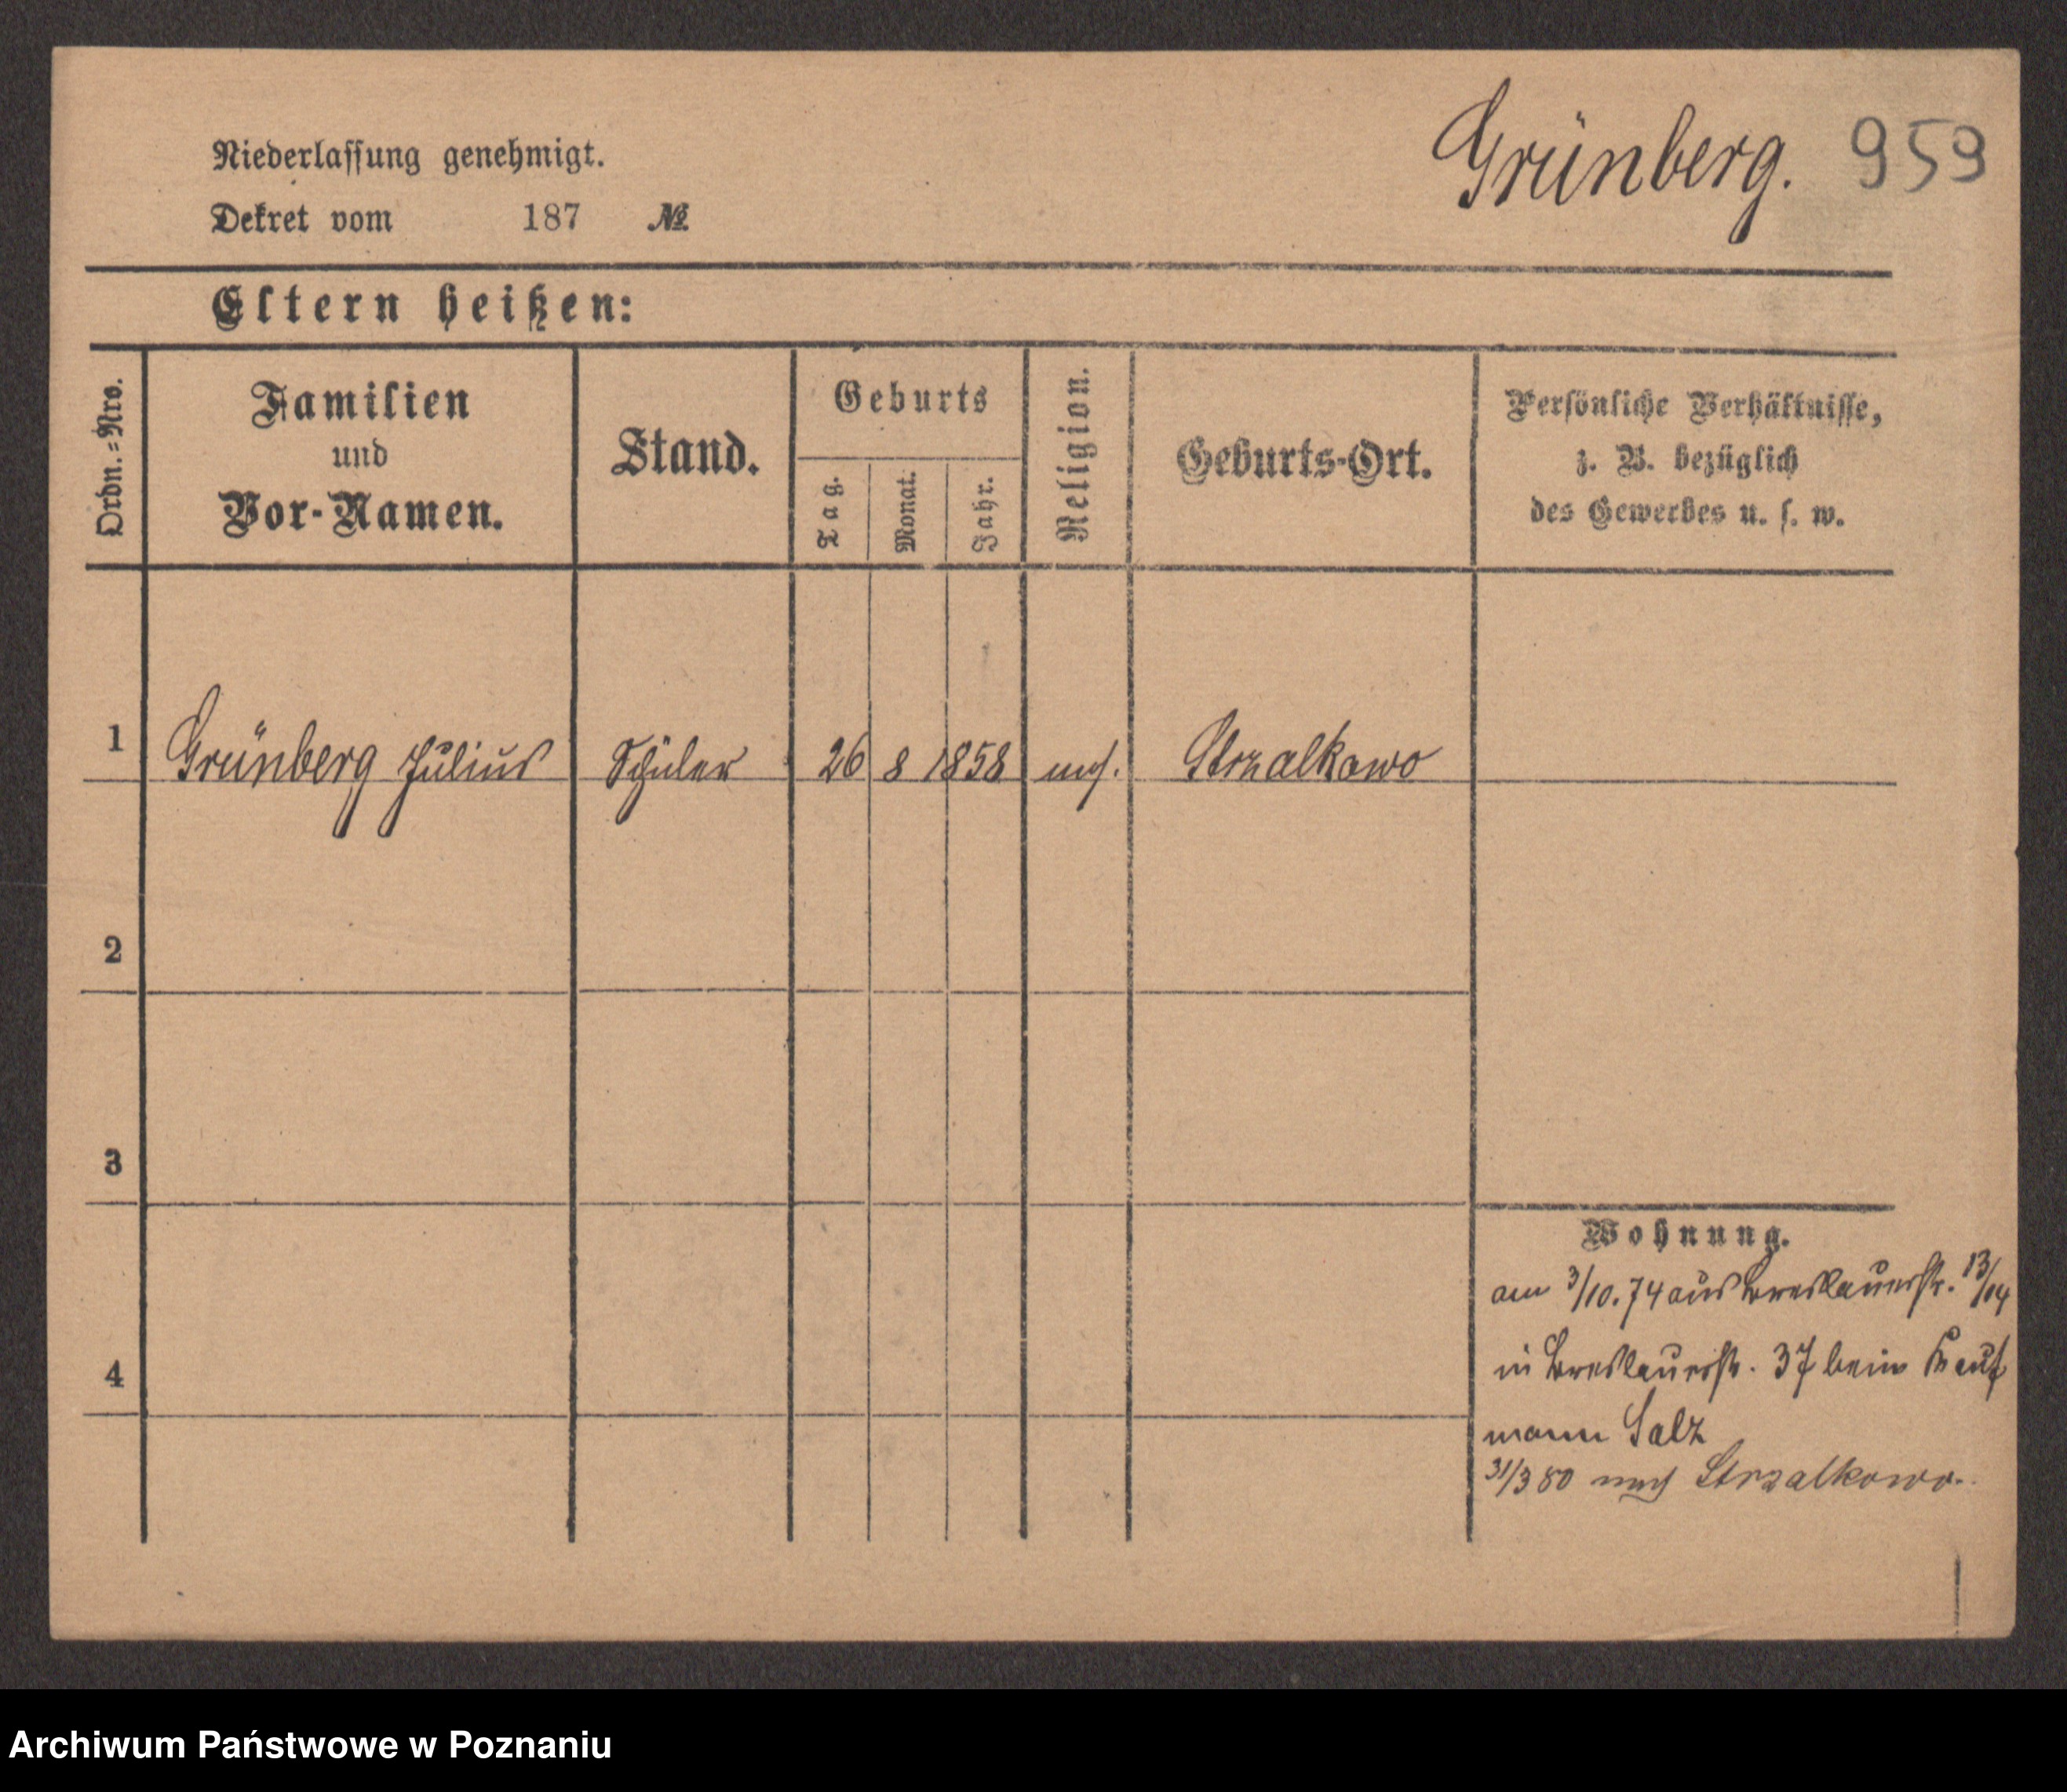 Grünberg. 959
Niederlassung genehmigt.
Dekret vom 187 №
Eltern heißen:
Ordn.=Nro.
Familien
und
Vor-Namen.
Stand.
Geburts
Tag.
Monat.
Jahr.
Religion.
Geburts-Ort.
Persönliche Verhältnisse,
z. B. bezüglich
des Gewerbes u. s. w.
1 Grünberg Julius Schüler 26 8 1858 Strzalkowo
2
3
4
Wohnung.
am 3/10. 74 aus Breslauerstr. 13/14
in Breslauerstr. 37 beim Kauf
mann Salz
31/3 80 nach Strzalkowo.
Archiwum Państwowe w Poznaniu